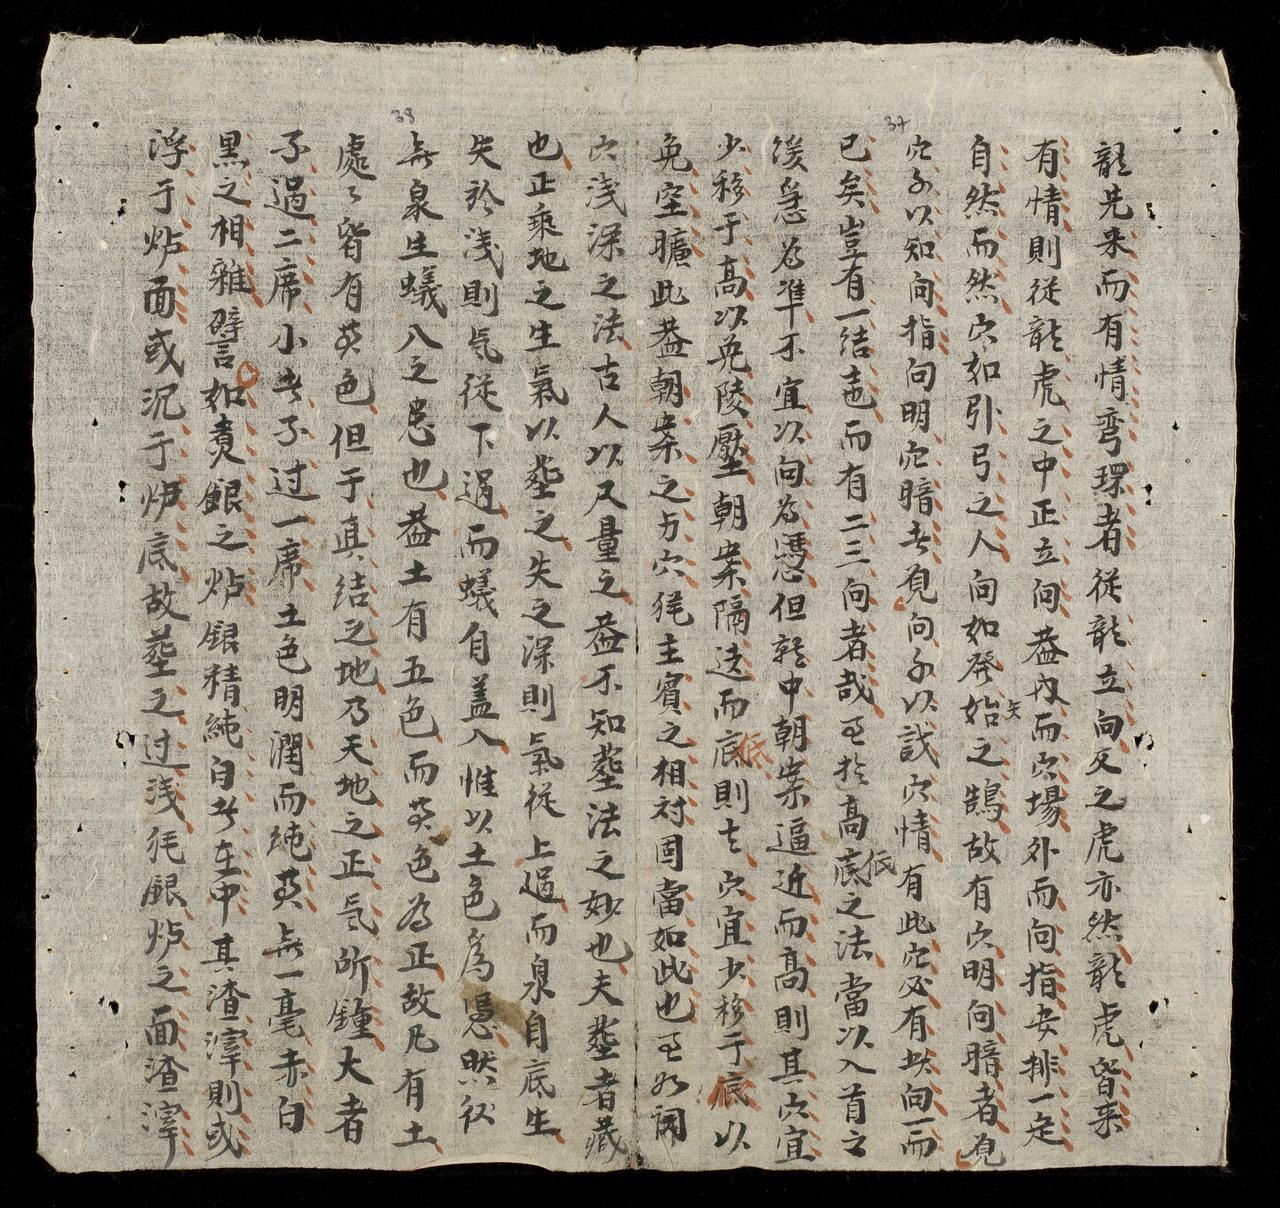 龍先来而有情弯環者従龍立向反之虎亦然龍虎皆来
有情則従龍虎之中正立向盖內而穴場外而向指安排一定
自然而然穴如引弓之人向如發始矢之鵠故有穴明向暗者見
穴子以知向指向明穴暗者見向子以識穴情有此穴必有此向一而
已矣豈有一結壱而有二三向者哉至於高底低之法當以入首之
緩急為準不宜以向為憑但龍中朝案逼近而高則其穴宜
少移于高以免陵壓朝案隔遠而底低則其穴宜少移于底以
免空曠此盖朝案之与穴猶主賓之相対固當如此也至如開
穴浅深之法古人以尺量之盖不知葬法之妙也夫葬者藏
也正乘地之生氣以葬之失之深則氣従上過而泉自底生
失於浅則気従下過而蟻自盖入惟以土色為憑然後
無泉生蟻入之患也盖土有五色而黃色為正故凡有土
處々皆有黃色但于真結之地乃天地之正気所鍾大者
不過二席小者不过一席土色明潤而純黃無一毫赤白
黑之相雜譬如煑銀之炉銀精純白者在中其渣滓則或
浮于炉面或沉于炉底故葬之过浅猶銀炉之面渣滓
37
38